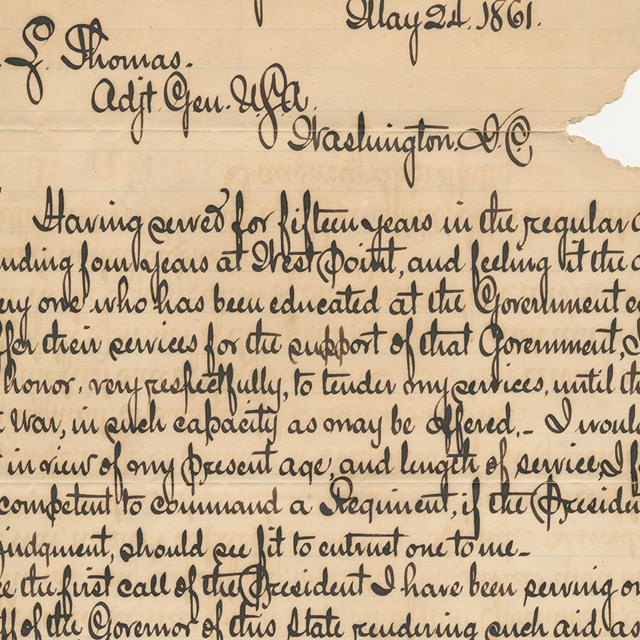 May 24. 1861.
L. Thomas.
Adjt. Gen. U.S.A.
Washington. D.C.
Having served for fifteen years in the regular a
nding four years at West Point, and feeling it the d
ery one who has been educated at the Government e
ffer their services for the support of that Government, I
honor, very respectfully, to tender my services, until th
t War, in such capacity as may be offered._ I would
in view of my present age, and length of service, I f
competent to command a Regiment, if the Preside
judgment, should see fit to entrust one to me._
ce the first call of the President I have been serving on
ff of the Governor of this State rendering such aid as